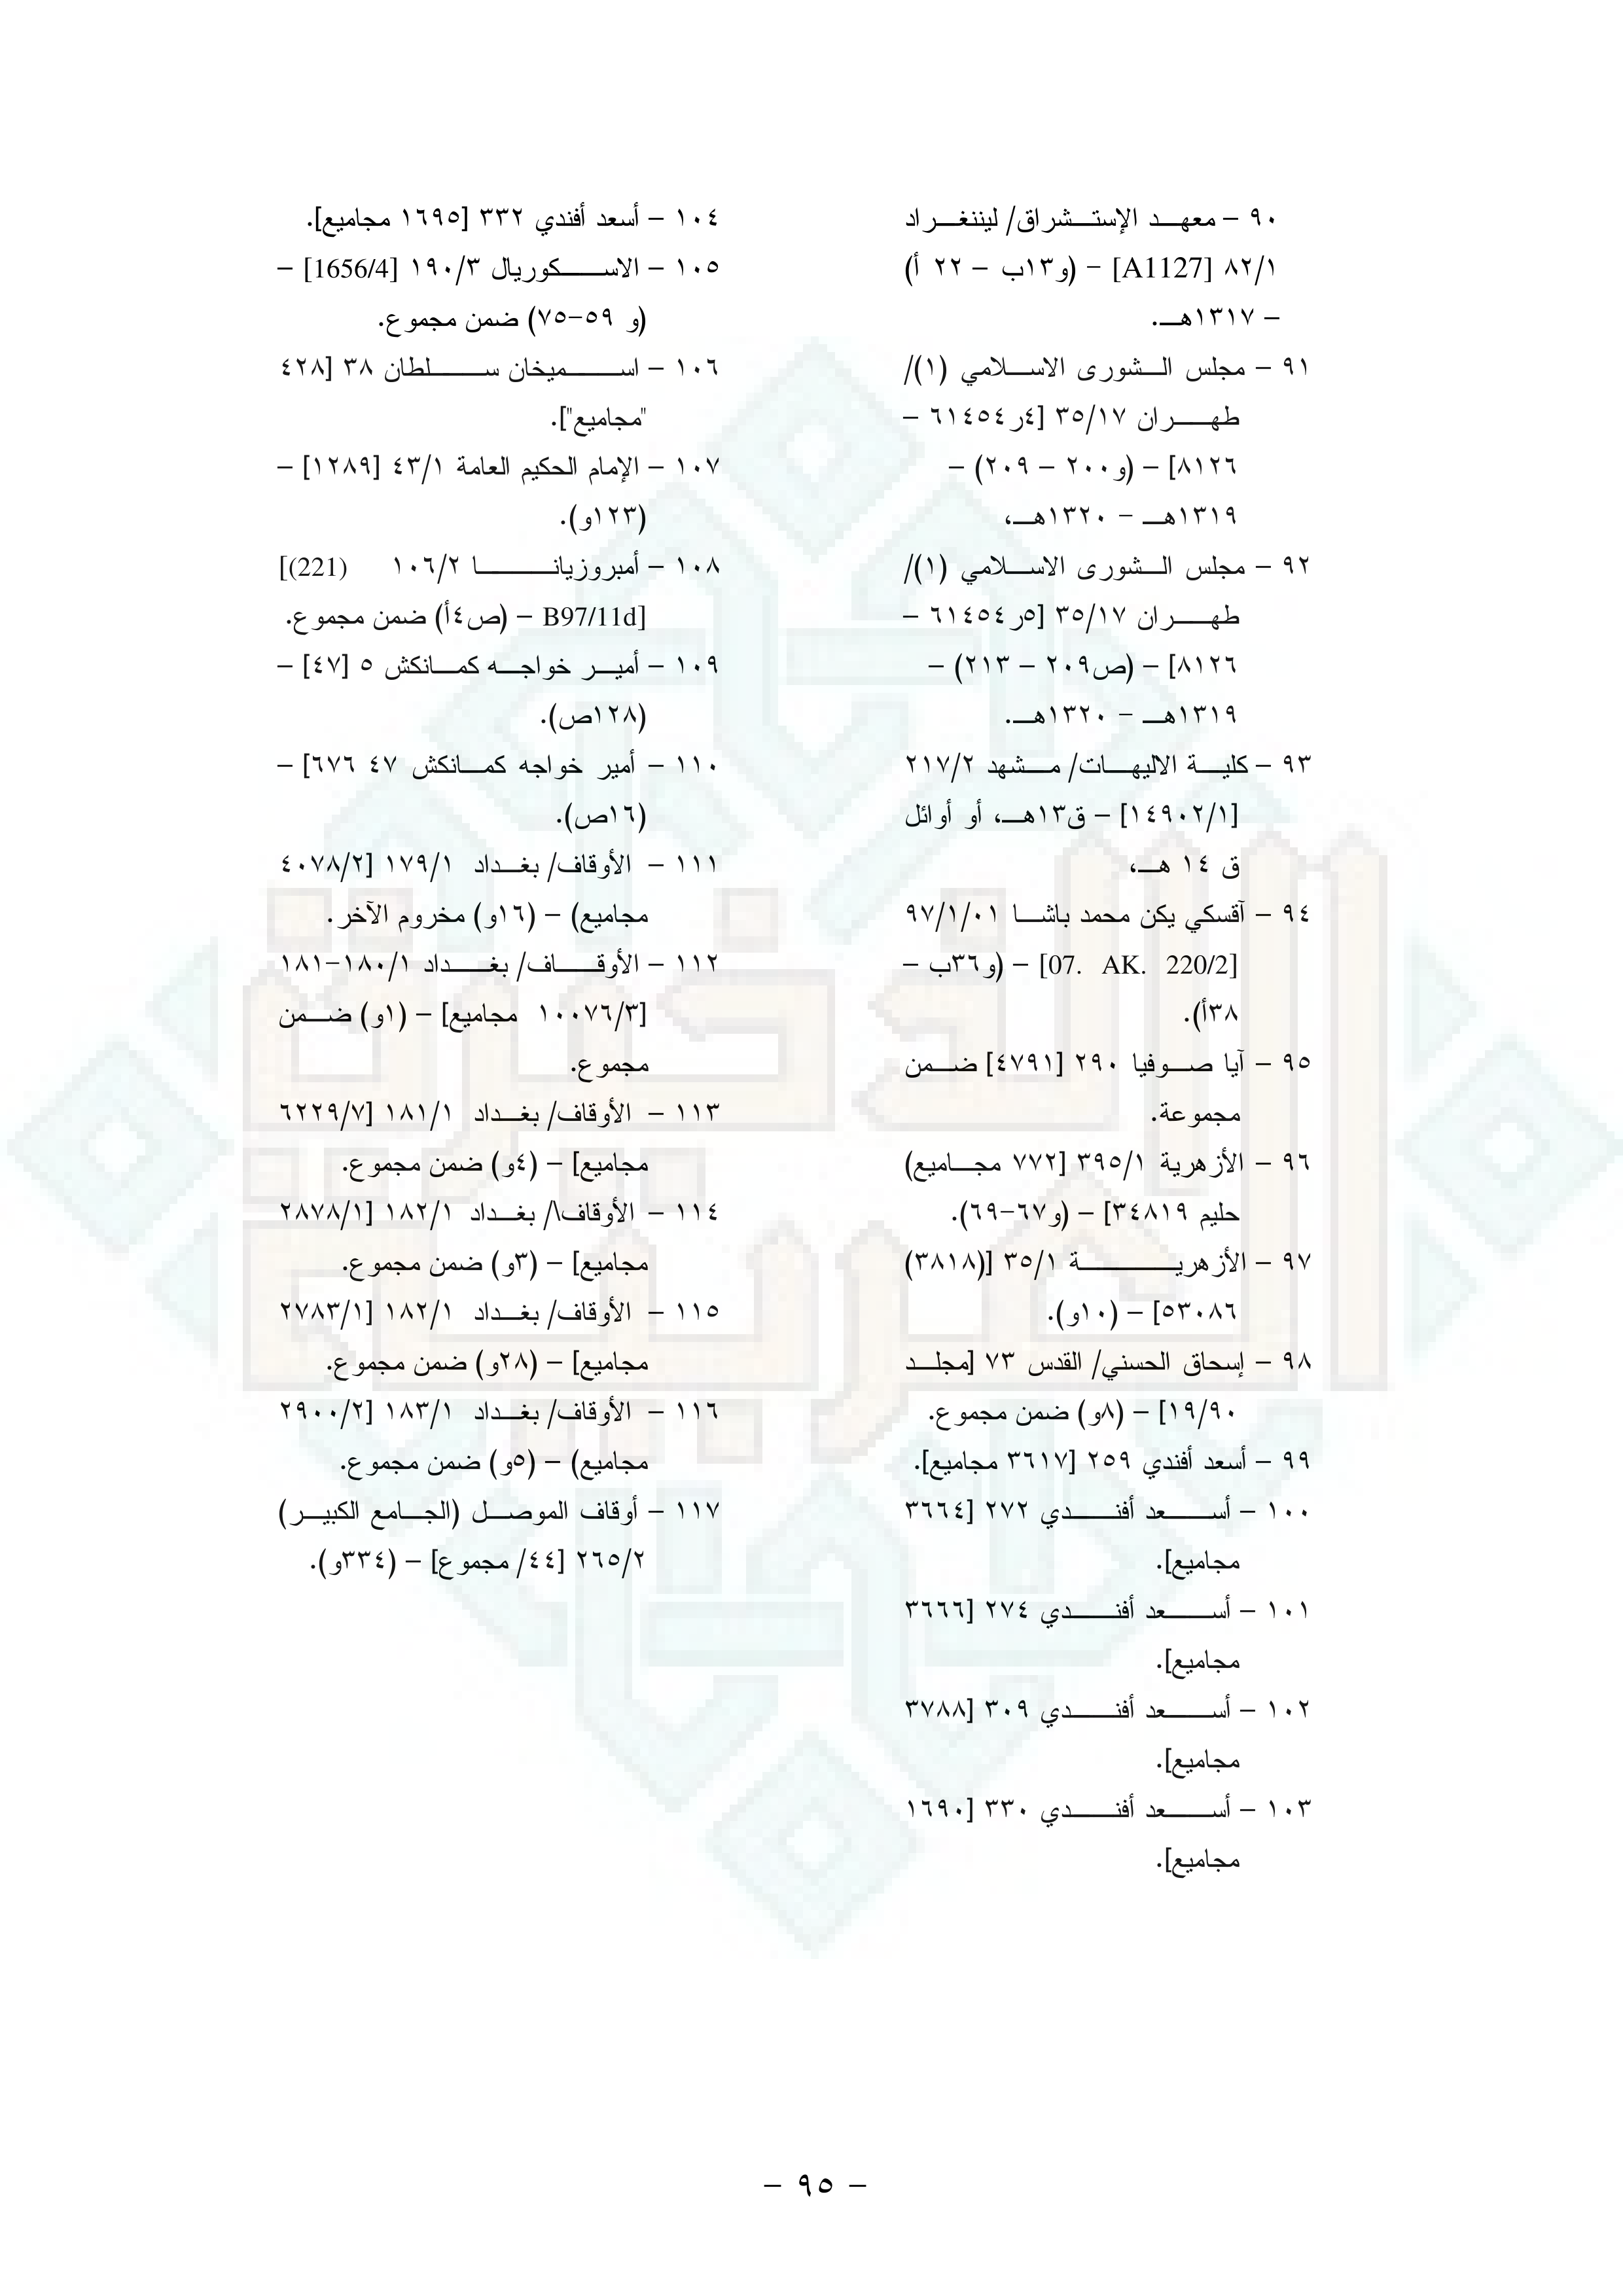 ٩٠ – معهد الإستشراق/ ليننغراد
٨٢/١ [A1127] – (و١٣ب – ٢٢ أ)
– ١٣١٧هـ.
٩١ – مجلس الشورى الاسلامي (١)/
طهران ٣٥/١٧ [٤ر٦١٤٥٤ –
٨١٢٦] – (و٢٠٠ – ٢٠٩) –
١٣١٩هـ – ١٣٢٠هـ،
٩٢ – مجلس الشورى الاسلامي (١)/
طهران ٣٥/١٧ [٥ر٦١٤٥٤ –
٨١٢٦] – (ص٢٠٩ – ٢١٣) –
١٣١٩هـ – ١٣٢٠هـ.
٩٣ – كلية الاليهات/ مشهد ٢١٧/٢
[١٤٩٠٢/١] – ق١٣هـ، أو أوائل
ق ١٤ هـ،
٩٤ – آقسكي يكن محمد باشا ٩٧/١/٠١
[07. AK. 220/2] – (و٣٦ب –
٣٨أ).
٩٥ – آيا صوفيا ٢٩٠ [٤٧٩١] ضمن
مجموعة.
٩٦ – الأزهرية ٣٩٥/١ [٧٧٢ مجاميع)
حليم ٣٤٨١٩] – (و٦٧-٦٩).
٩٧ – الأزهرية ٣٥/١ [(٣٨١٨)
٥٣٠٨٦] – (١٠و).
٩٨ – إسحاق الحسني/ القدس ٧٣ [مجلد
١٩/٩٠] – (٨و) ضمن مجموع.
٩٩ – أسعد أفندي ٢٥٩ [٣٦١٧ مجاميع].
١٠٠ – أسعد أفندي ٢٧٢ [٣٦٦٤
مجاميع].
١٠١ – أسعد أفندي ٢٧٤ [٣٦٦٦
مجاميع].
١٠٢ – أسعد أفندي ٣٠٩ [٣٧٨٨
مجاميع].
١٠٣ – أسعد أفندي ٣٣٠ [١٦٩٠
مجاميع].
١٠٤ – أسعد أفندي ٣٣٢ [١٦٩٥ مجاميع].
١٠٥ – الاسكوريال ١٩٠/٣ [1656/4] –
(و ٥٩-٧٥) ضمن مجموع.
١٠٦ – اسميخان سلطان ٣٨ [٤٢٨
"مجاميع"].
١٠٧ – الإمام الحكيم العامة ٤٣/١ [١٢٨٩] –
(١٢٣و).
١٠٨ – أمبروزيانا ١٠٦/٢ [(221)
B97/11d] – (ص٤أ) ضمن مجموع.
١٠٩ – أمير خواجه كمانكش ٥ [٤٧] –
(١٢٨ص).
١١٠ – أمير خواجه كمانكش ٤٧ ٦٧٦] –
(١٦ص).
١١١ – الأوقاف/ بغداد ١٧٩/١ [٤٠٧٨/٢
مجاميع) – (١٦و) مخروم الآخر.
١١٢ – الأوقاف/ بغداد ١٨٠/١-١٨١
[١٠٠٧٦/٣ مجاميع] – (١و) ضمن
مجموع.
١١٣ – الأوقاف/ بغداد ١٨١/١ [٦٢٢٩/٧
مجاميع] – (٤و) ضمن مجموع.
١١٤ – الأوقاف\/ بغداد ١٨٢/١ [٢٨٧٨/١
مجاميع] – (٣و) ضمن مجموع.
١١٥ – الأوقاف/ بغداد ١٨٢/١ [٢٧٨٣/١
مجاميع] – (٢٨و) ضمن مجموع.
١١٦ – الأوقاف/ بغداد ١٨٣/١ [٢٩٠٠/٢
مجاميع) – (٥و) ضمن مجموع.
١١٧ – أوقاف الموصل (الجامع الكبير)
٢٦٥/٢ [٤٤/ مجموع] – (٣٣٤و).
– ٩٥ –